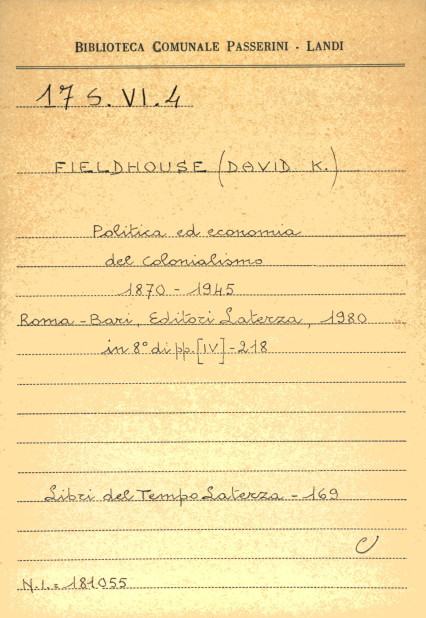 BIBLIOTECA COMUNALE PASSERINI - LANDI
17 S. VI. 4
FIELDHOUSE (DAVID K.)
Politica ed economia
del colonialismo
1870 - 1945
Roma - Bari, Editori Laterza, 1980
in 8° di pp. [IV] - 218
Libri del Tempo Laterza - 169
N.I. = 181055